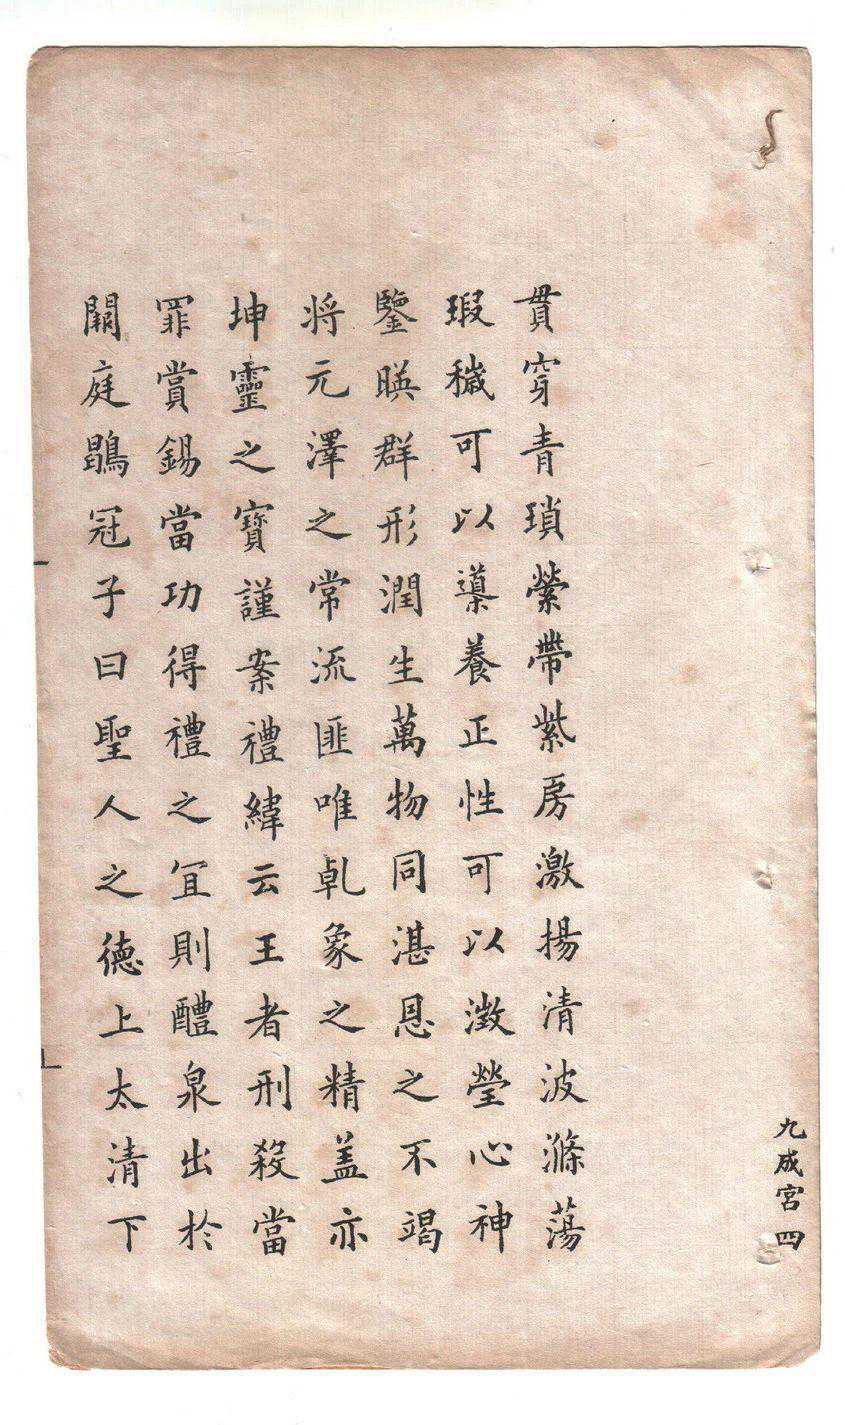 九成宮 四
貫穿青瑣縈帶紫房激揚清波滌蕩
瑕穢可以𨗉養正性可以澂瑩心神
鑒暎群形潤生萬物同湛恩之不竭
将元澤之常流匪唯乹象之精盖亦
坤靈之寶謹案禮緯云王者刑殺當
罪賞錫當功得禮之冝則醴泉出於
闕庭鶡冠子曰聖人之德上太清下